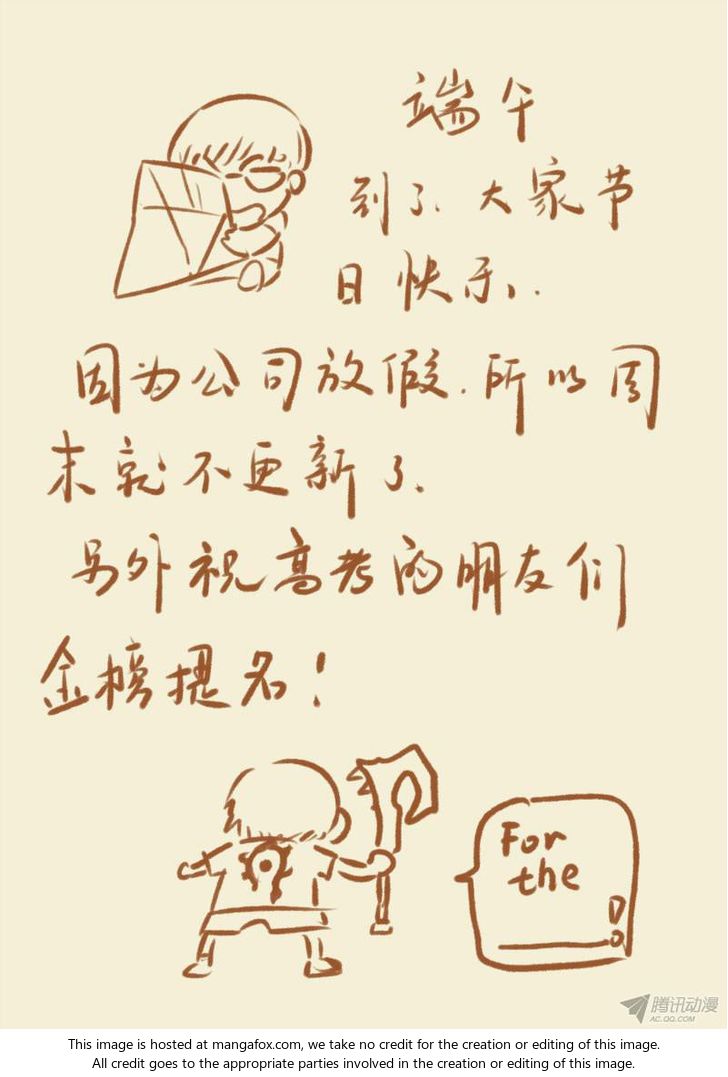 端午
到了、大家节
日快乐、.
因为公司放假.所以周
末就不更新了、
另外祝高考的朋友们
金榜提名!
For
the
!!
腾讯动漫
AC.QQ.COM
This image is hosted at mangafox.com, we take no credit for the creation or editing of this image.
All credit goes to the appropriate parties involved in the creation or editing of this image.